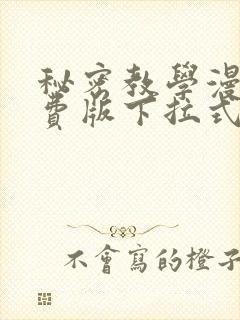 秘密教學漫
費版下拉式
不會寫的橙子